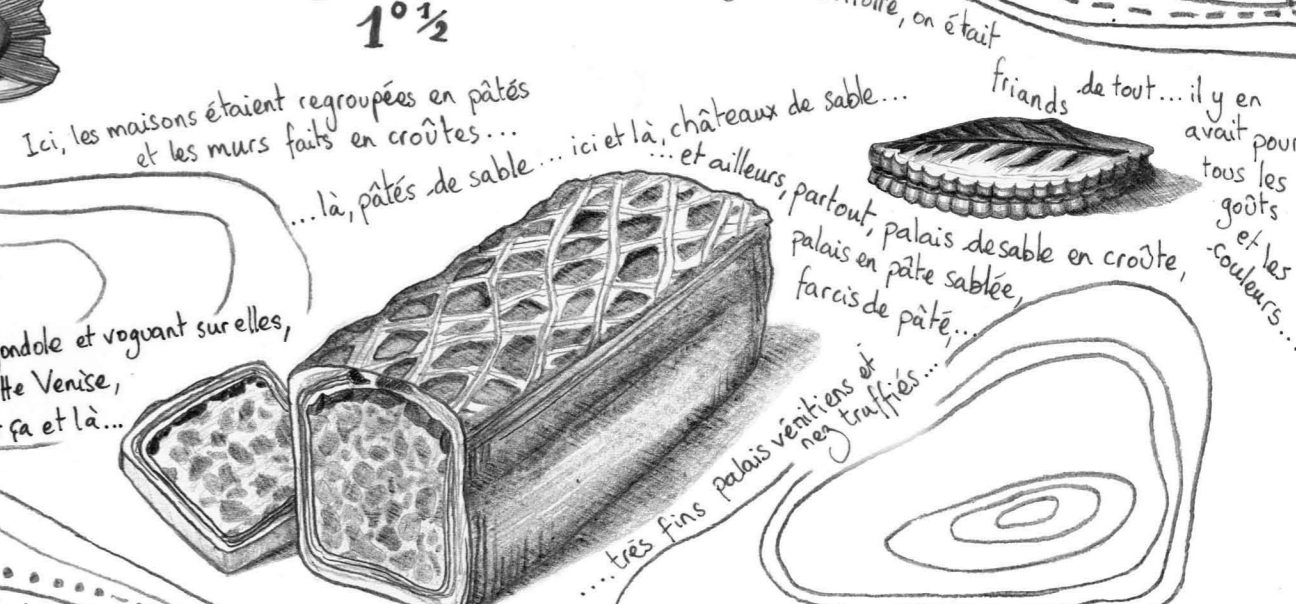 1º ½
on était
friands de tout... il y en
avait pour
tous les
goûts
et les
couleurs...
Ici, les maisons étaient regroupées en pâtés
et les murs faits en croûtes...
...là, pâtés de sable... ici et là, châteaux de sable...
...et ailleurs, partout, palais de sable en croûte,
palais en pâte sablée,
farcis de pâté,...
....très fins palais vénitiens et
nez traffiés...
et voguant sur elles,
Venise,
ça et là...